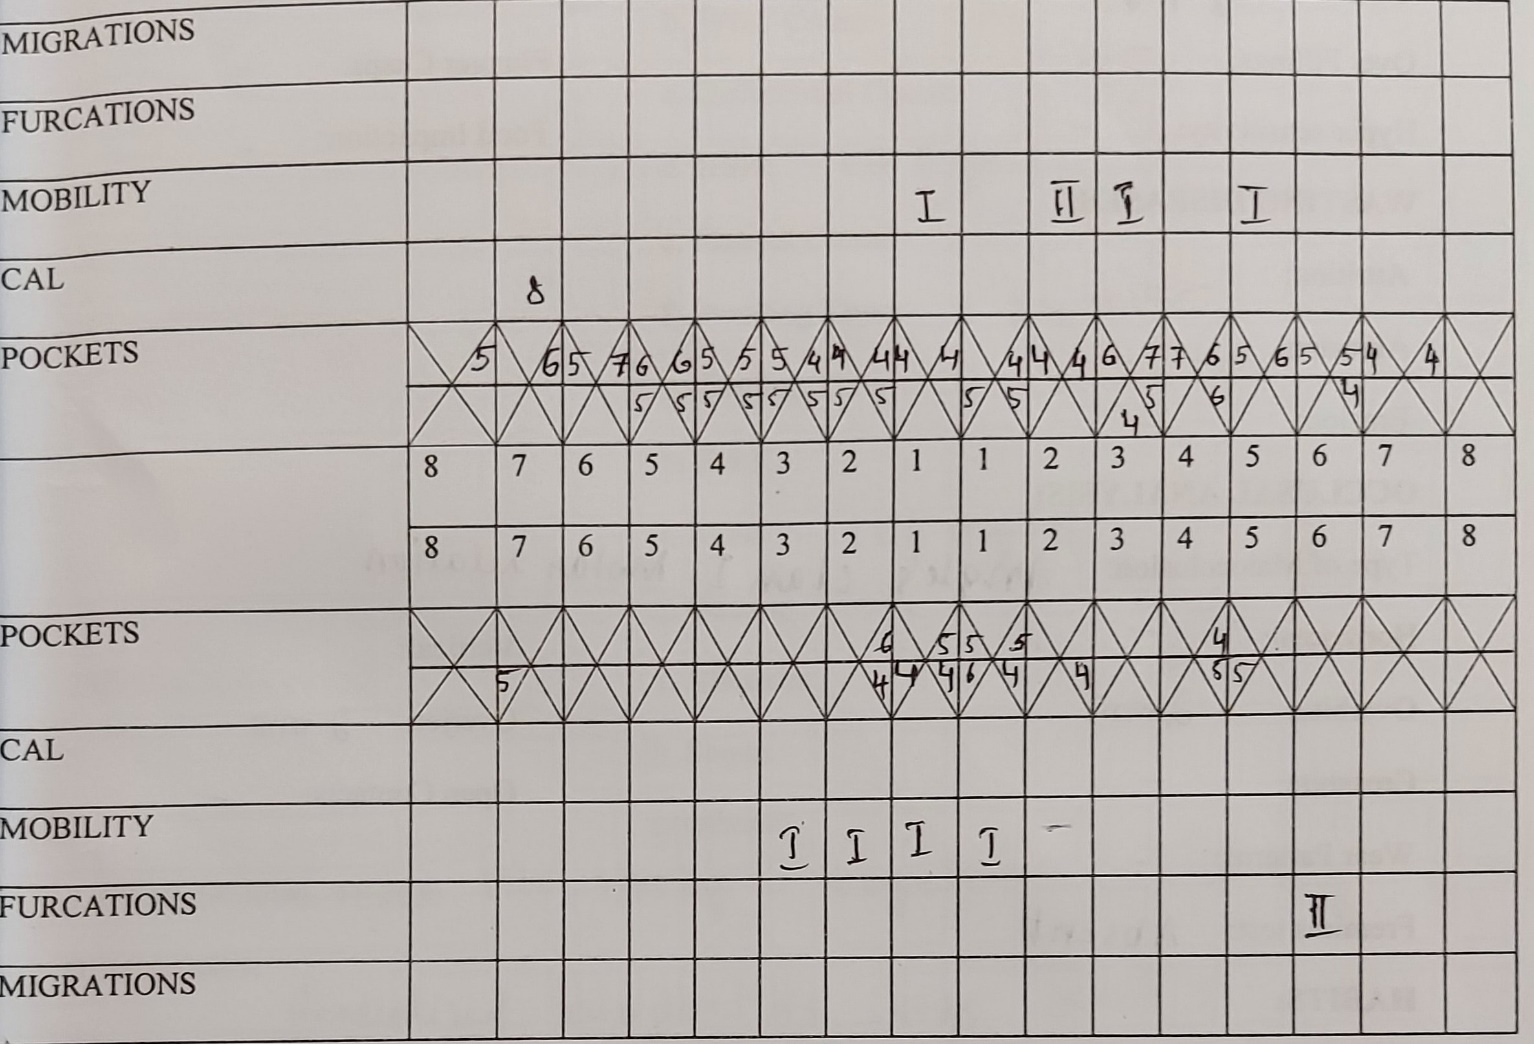 MIGRATIONS
FURCATIONS
MOBILITY I II I I
CAL 8
POCKETS 5 6 5 7 6 6 5 5 5 4 4 4 4 4 4 4 4 6 7 7 6 5 6 5 5 4 4
5 5 5 5 5 5 5 5 5 5 5 6 4
4
8 7 6 5 4 3 2 1 1 2 3 4 5 6 7 8
8 7 6 5 4 3 2 1 1 2 3 4 5 6 7 8
POCKETS 6 5 5 5 4
5 4 4 4 6 4 4 5
CAL
MOBILITY I I I I -
FURCATIONS II
MIGRATIONS